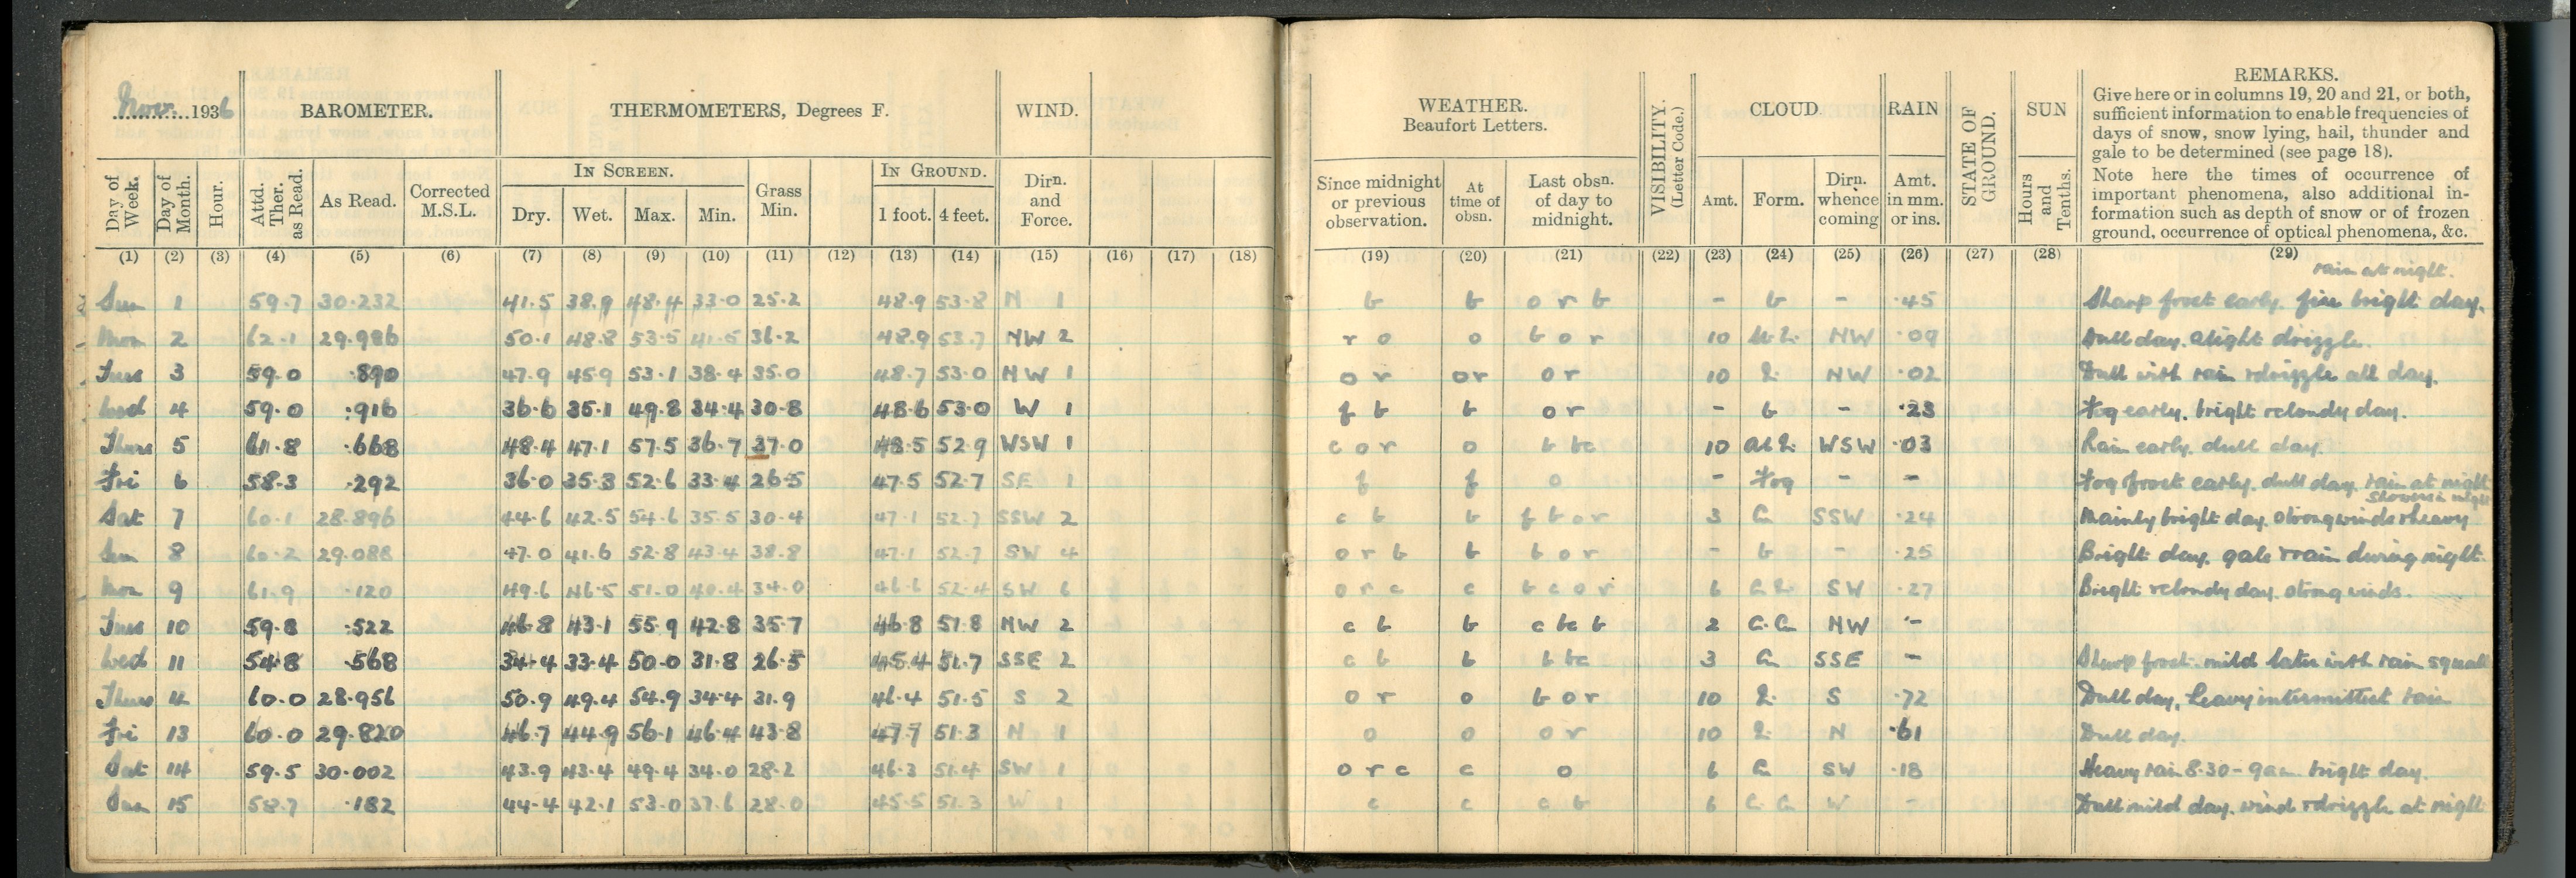 Nov. 1936 BAROMETER. THERMOMETERS, Degrees F. WIND.
Day of Week. Day of Month. Hour. Attd. Ther. as Read. As Read. Corrected M.S.L. IN SCREEN. Dry. Wet. Max. Min. Grass Min. IN GROUND. 1 foot. 4 feet. Dirn. and Force.
(1) (2) (3) (4) (5) (6) (7) (8) (9) (10) (11) (12) (13) (14) (15) (16) (17) (18)
Sun 1 59.7 30.232 41.5 38.9 48.4 33.0 25.2 48.9 53.8 N 1
Mon 2 62.1 29.986 50.1 48.8 53.5 41.5 36.2 48.9 53.7 NW 2
Tues 3 59.0 .890 47.9 45.9 53.1 38.4 35.0 48.7 53.0 NW 1
Wed 4 59.0 .916 36.6 35.1 49.8 34.4 30.8 48.6 53.0 W 1
Thurs 5 61.8 .668 48.4 47.1 57.5 36.7 37.0 48.5 52.9 WSW 1
Fri 6 58.3 .292 36.0 35.3 52.6 33.4 26.5 47.5 52.7 SE 1
Sat 7 60.1 28.896 44.6 42.5 54.6 35.5 30.4 47.1 52.7 SSW 2
Sun 8 60.2 29.088 47.0 41.6 52.8 43.4 38.8 47.1 52.7 SW 4
Mon 9 61.9 .120 49.6 46.5 51.0 40.4 34.0 46.6 52.4 SW 6
Tues 10 59.8 .522 46.8 43.1 55.9 42.8 35.7 46.8 51.8 NW 2
Wed 11 54.8 .568 34.4 33.4 50.0 31.8 26.5 45.4 51.7 SSE 2
Thurs 60.0 28.956 50.9 49.4 54.9 34.4 31.9 46.4 51.5 S 2
Fri 13 60.0 29.820 46.7 44.9 56.1 46.4 43.8 47.7 51.3 N 1
Sat 14 59.5 30.002 43.9 43.4 49.4 34.0 28.2 46.3 51.4 SW 1
Sun 15 58.7 .182 44.4 42.1 53.0 37.6 28.0 45.5 51.3 W 1
WEATHER. Beaufort Letters. VISIBILITY. (Letter Code.) CLOUD RAIN STATE OF GROUND. SUN REMARKS.
Since midnight or previous observation. At time of obsn. Last obsn. of day to midnight. Amt. Form. Dirn. whence coming Amt. in mm. or ins. Hours and Tenths.
Give here or in columns 19, 20 and 21, or both,
sufficient information to enable frequencies of
days of snow, snow lying, hail, thunder and
gale to be determined (see page 18).
Note here the times of occurrence of
important phenomena, also additional in-
formation such as depth of snow or of frozen
ground, occurrence of optical phenomena, &c.
(19) (20) (21) (22) (23) (24) (25) (26) (27) (28) (29)
rain at night.
b b o r b - b - .45 Sharp frost early. fine bright day.
r o o b o r 10 NW .09 Dull day. slight drizzle.
o r or o r 10 NW .02 Dull with rain & drizzle all day.
f b b o r - b - .23 Fog early. bright & cloudy day.
c o r o b bc 10 WSW .03 Rain early. dull day.
f f o - Fog - - Fog frost early. dull day. rain at night
showers in night
c b b f b o r 3 SSW .24 Mainly bright day. strong winds & heavy
o r b b b o r - b - .25 Bright day. gale & rain during night.
o r c c b c o r 6 SW .27 Bright & cloudy day. strong winds.
c b b c bc b 2 NW -
c b b b bc 3 SSE - Sharp frost. mild later with rain squall
o r o b o r 10 S .72 Dull day, heavy intermittent rain
o o o r 10 N .61 Dull day.
o r c c o 6 SW .18 Heavy rain 8.30 - 9am. bright day.
c c c b 6 W - Dull mild day. wind & drizzle at night